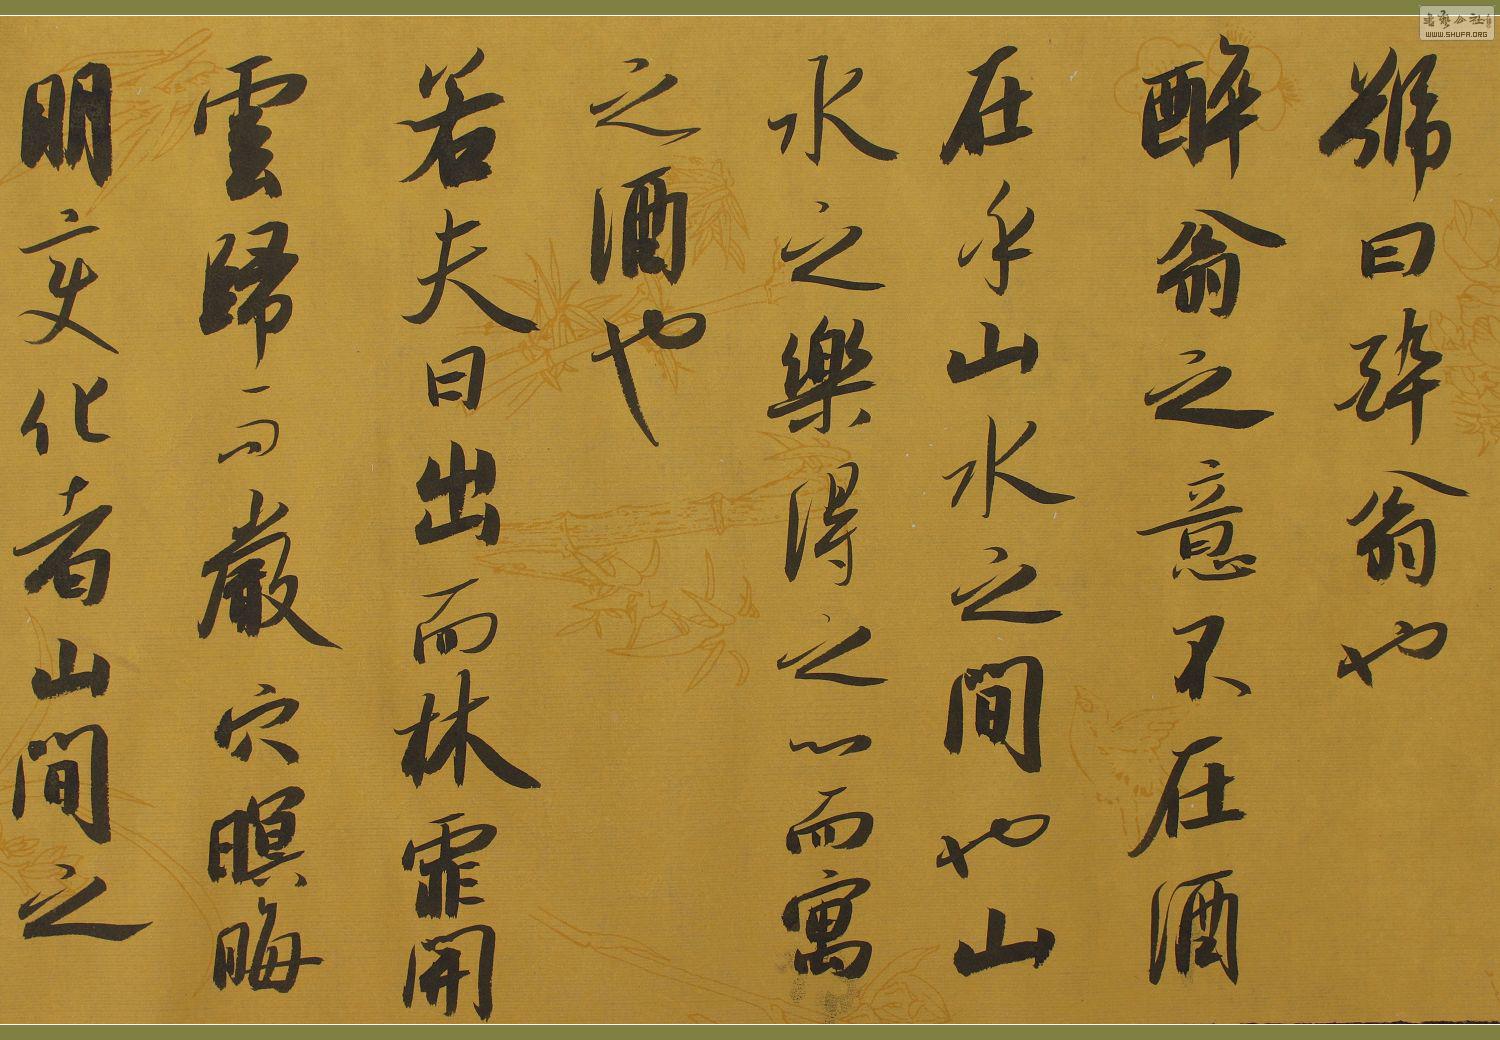 號曰醉翁也
醉翁之意不在酒
在乎山水之間也山
水之樂得之心而寓
之酒也
若夫日出而林霏開
雲歸而巖穴暝晦
明變化者山間之
書藝公社
WWW.SHUFA.ORG